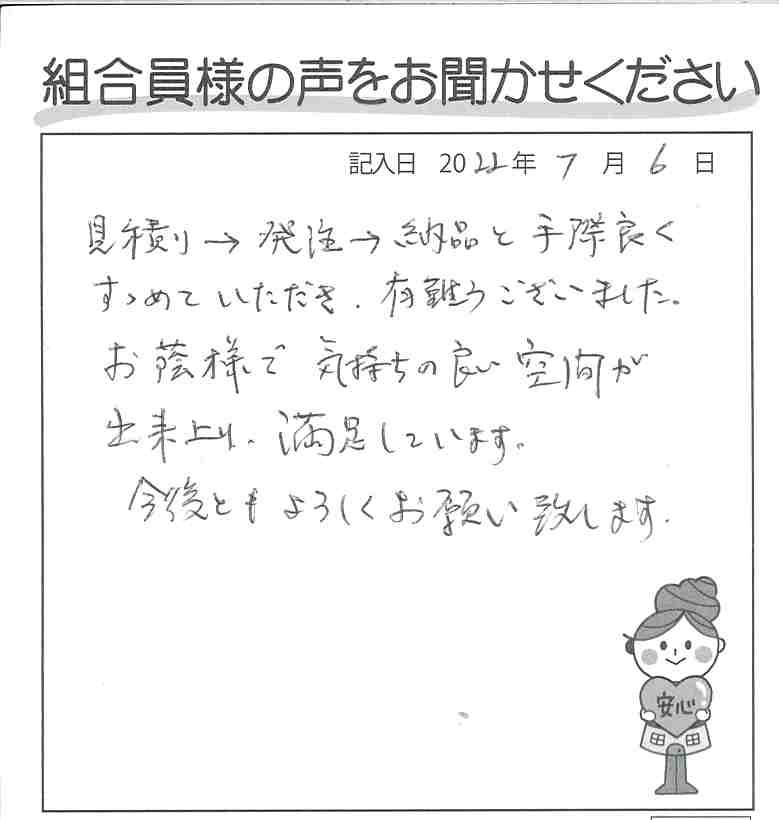 組合員様の声をお聞かせください
記入日 2022年 7月 6日
見積り→発注→納品と手際良く
すゝめていただき、有難うございました。
お蔭様で気持ちの良い空間が
出来上り、満足しています。
今後ともよろしくお願い致します。
安心